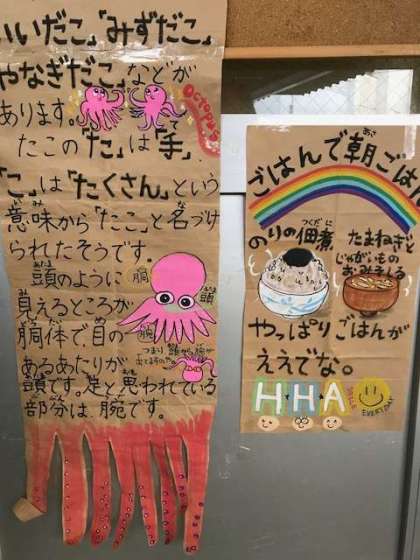 いいだこ」「みずだこ」
やなぎだこ」などが
あります。
Octopus
たこの「た」は「手」
て
「こ」は「たくさん」という
意味から「たこ」と名づけ
いみ
られたそうです。
頭のように
あたま
見えるところが
胴体で、目の
どうたい
あるあたりが
頭です。足と思われている
部分は、腕です。
胴
頭
腕
つまり 頭から腕が
出てるのだ。
ごはんで朝ごはん
あさ
のりの佃煮
つくだに
たまねぎと
じゃがいもの
おみそしる
やっぱりごはんが
ええでな。
H・H・A
SMILE
EVERYDAY